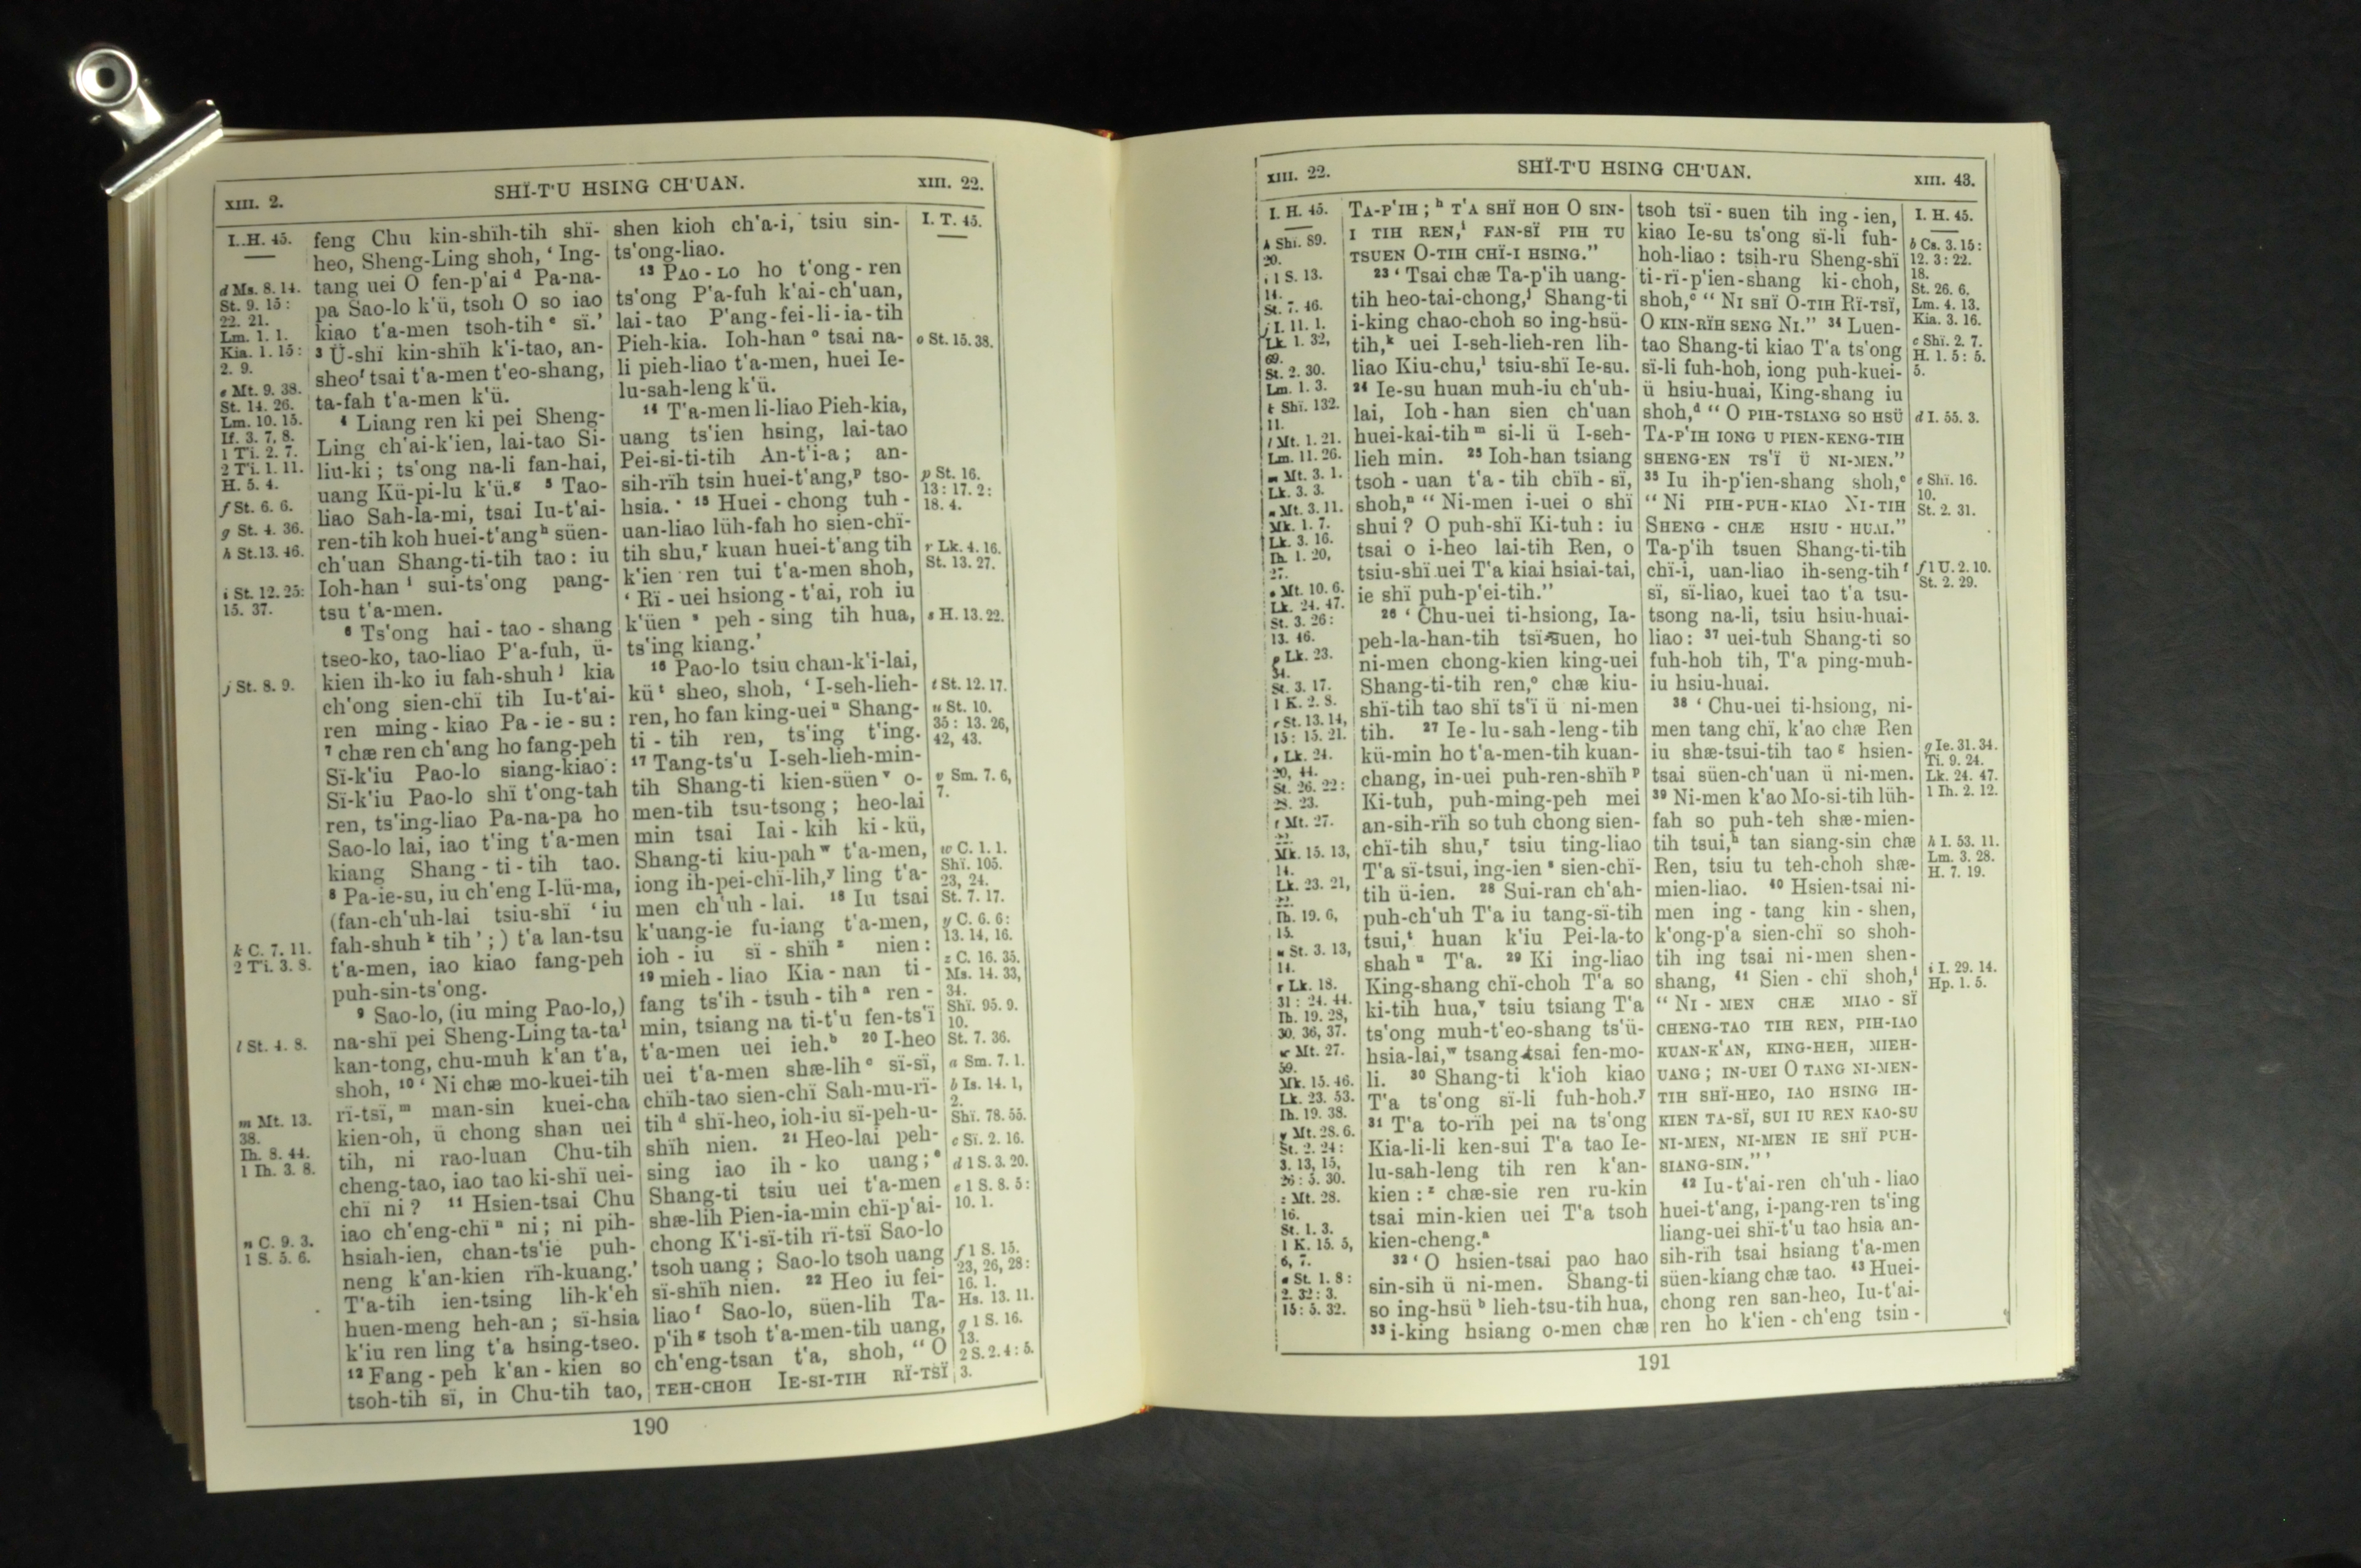 XIII. 2.
SHÏ-T'U HSING CH'UAN.
XIII. 22.
I. H. 45.
d Ms. 8. 14.
St. 9. 15 :
22. 21.
Lm. 1. 1.
Kia. 1. 15 :
2. 9.
e Mt. 9. 38.
St. 14. 26.
Lm. 10. 15.
If. 3. 7, 8.
1 Ti. 2. 7.
2 Ti. 1. 11.
H. 5. 4.
f St. 6. 6.
g St. 4. 36.
h St. 13. 46.
i St. 12. 25:
15. 37.
j St. 8. 9.
k C. 7. 11.
2 Ti. 3. 8.
l St. 4. 8.
m Mt. 13.
38.
Ih. 8. 44.
1 Ih. 3. 8.
n C. 9. 3.
1 S. 5. 6.
feng Chu kin-shïh-tih shï-
heo, Sheng-Ling shoh, ‘ Ing-
tang uei O fen-p'ai d Pa-na-
pa Sao-lo k'ü, tsoh O so iao
kiao t'a-men tsoh-tih e sï.’
3 Ü-shï kin-shïh k'i-tao, an-
sheo f tsai t'a-men t'eo-shang,
ta-fah t'a-men k'ü.
4 Liang ren ki pei Sheng-
Ling ch'ai-k'ien, lai-tao Si-
liu-ki ; ts'ong na-li fan-hai,
uang Kü-pi-lu k'ü. g 5 Tao-
liao Sah-la-mi, tsai Iu-t'ai-
ren-tih koh huei-t'ang h süen-
ch'uan Shang-ti-tih tao : iu
Ioh-han i sui-ts'ong pang-
tsu t'a-men.
6 Ts'ong hai-tao-shang
tseo-ko, tao-liao P'a-fuh, ü-
kien ih-ko iu fah-shuh j kia
ch'ong sien-chï tih Iu-t'ai-
ren ming-kiao Pa-ie-su :
7 chæ ren ch'ang ho fang-peh
Sï-k'iu Pao-lo siang-kiao :
Sï-k'iu Pao-lo shï t'ong-tah
ren, ts'ing-liao Pa-na-pa ho
Sao-lo lai, iao t'ing t'a-men
kiang Shang-ti-tih tao.
8 Pa-ie-su, iu ch'eng I-lü-ma,
(fan-ch'uh-lai tsiu-shï ‘ iu
fah-shuh k tih ’ ; ) t'a lan-tsu
t'a-men, iao kiao fang-peh
puh-sin-ts'ong.
9 Sao-lo, (iu ming Pao-lo,)
na-shï pei Sheng-Ling ta-ta l
kan-tong, chu-muh k'an t'a,
shoh, 10 ‘ Ni chæ mo-kuei-tih
rï-tsï, m man-sin kuei-cha
kien-oh, ü chong shan uei
tih, ni rao-luan Chu-tih
cheng-tao, iao tao ki-shï uei-
chï ni ? 11 Hsien-tsai Chu
iao ch'eng-chï n ni ; ni pih-
hsiah-ien, chan-ts'ie puh-
neng k'an-kien rïh-kuang.’
T'a-tih ien-tsing lih-k'eh
huen-meng heh-an ; sï-hsia
k'iu ren ling t'a hsing-tseo.
12 Fang-peh k'an-kien so
tsoh-tih sï, in Chu-tih tao,
shen kioh ch'a-i, tsiu sin-
ts'ong-liao.
13 PAO-LO ho t'ong-ren
ts'ong P'a-fuh k'ai-ch'uan,
lai-tao P'ang-fei-li-ia-tih
Pieh-kia. Ioh-han o tsai na-
li pieh-liao t'a-men, huei Ie-
lu-sah-leng k'ü.
14 T'a-men li-liao Pieh-kia,
uang ts'ien hsing, lai-tao
Pei-si-ti-tih An-t'i-a ; an-
sih-rïh tsin huei-t'ang, p tso-
hsia. 15 Huei-chong tuh-
uan-liao lüh-fah ho sien-chï-
tih shu, r kuan huei-t'ang tih
k'ien ren tui t'a-men shoh,
‘ Rï-uei hsiong-t'ai, roh iu
k'üen s peh-sing tih hua,
ts'ing kiang.’
16 Pao-lo tsiu chan-k'i-lai,
kü t sheo, shoh, ‘ I-seh-lieh-
ren, ho fan king-uei u Shang-
ti-tih ren, ts'ing t'ing.
17 Tang-ts'u I-seh-lieh-min-
tih Shang-ti kien-süen v o-
men-tih tsu-tsong ; heo-lai
min tsai Iai-kih ki-kü,
Shang-ti kiu-pah w t'a-men,
iong ih-pei-chï-lih, y ling t'a-
men ch'uh-lai. 18 Iu tsai
k'uang-ie fu-iang t'a-men,
ioh-iu sï-shïh z nien :
19 mieh-liao Kia-nan ti-
fang ts'ih-tsuh-tih a ren-
min, tsiang na ti-t'u fen-ts'ï
t'a-men uei ieh. b 20 I-heo
uei t'a-men shæ-lih c sï-sï,
chïh-tao sien-chï Sah-mu-rï-
tih d shï-heo, ioh-iu sï-peh-u-
shïh nien. 21 Heo-lai peh-
sing iao ih-ko uang ; e
Shang-ti tsiu uei t'a-men
shæ-lih Pien-ia-min chï-p'ai-
chong K'i-sï-tih rï-tsï Sao-lo
tsoh uang ; Sao-lo tsoh uang
sï-shïh nien. 22 Heo iu fei-
liao f Sao-lo, süen-lih Ta-
p'ih g tsoh t'a-men-tih uang,
ch'eng-tsan t'a, shoh, “ O
TEH-CHOH IE-SI-TIH RÏ-TSÏ
I. T. 45.
o St. 15. 38.
p St. 16.
13 : 17. 2 :
18. 4.
r Lk. 4. 16.
St. 13. 27.
s H. 13. 22.
t St. 12. 17.
u St. 10.
35 : 13. 26,
42, 43.
v Sm. 7. 6,
7.
w C. 1. 1.
Shï. 105.
23, 24.
St. 7. 17.
y C. 6. 6 :
13. 14, 16.
z C. 16. 35.
Ms. 14. 33,
34.
Shï. 95. 9.
10.
St. 7. 36.
a Sm. 7. 1.
b Is. 14. 1,
2.
Shï. 78. 55.
c Sï. 2. 16.
d 1 S. 3. 20.
e 1 S. 8. 5 :
10. 1.
f 1 S. 15.
23, 26, 28 :
16. 1.
Hs. 13. 11.
g 1 S. 16.
13.
2 S. 2. 4 : 5.
3.
190
XIII. 22.
SHÏ-T'U HSING CH'UAN.
XIII. 43.
I. H. 45.
h Shï. 89.
20.
i 1 S. 13.
14.
St. 7. 46.
j I. 11. 1.
Lk. 1. 32,
69.
St. 2. 30.
Lm. 1. 3.
k Shï. 132.
11.
l Mt. 1. 21.
Lm. 11. 26.
m Mt. 3. 1.
Lk. 3. 3.
n Mt. 3. 11.
Mk. 1. 7.
Lk. 3. 16.
Ih. 1. 20,
27.
o Mt. 10. 6.
Lk. 24. 47.
St. 3. 26 :
13. 46.
p Lk. 23.
34.
St. 3. 17.
1 K. 2. 8.
r St. 13. 14,
15 : 15. 21.
s Lk. 24.
20, 44.
St. 26. 22 :
28. 23.
t Mt. 27.
22.
Mk. 15. 13,
14.
Lk. 23. 21,
22.
Ih. 19. 6,
15.
u St. 3. 13,
14.
v Lk. 18.
31 : 24. 44.
Ih. 19. 28,
30, 36, 37.
w Mt. 27.
59.
Mk. 15. 46.
Lk. 23. 53.
Ih. 19. 38.
y Mt. 28. 6.
St. 2. 24 :
3. 13, 15,
26 : 5. 30.
z Mt. 28.
16.
St. 1. 3.
1 K. 15. 5,
6, 7.
a St. 1. 8 :
2. 32 : 3.
15 : 5. 32.
TA-P'IH ; h T'A SHÏ HOH O SIN-
I TIH REN, i FAN-SÏ PIH TU
TSUEN O-TIH CHÏ-I HSING.”
23 ‘ Tsai chæ Ta-p'ih uang-
tih heo-tai-chong, j Shang-ti
i-king chao-choh so ing-hsü-
tih, k uei I-seh-lieh-ren lih-
liao Kiu-chu, l tsiu-shï Ie-su.
24 Ie-su huan muh-iu ch'uh-
lai, Ioh-han sien ch'uan
huei-kai-tih m si-li ü I-seh-
lieh min. 25 Ioh-han tsiang
tsoh-uan t'a-tih chïh-sï,
shoh, n “ Ni-men i-uei o shï
shui ? O puh-shï Ki-tuh : iu
tsai o i-heo lai-tih Ren, o
tsiu-shï uei T'a kiai hsiai-tai,
ie shï puh-p'ei-tih.”
26 ‘ Chu-uei ti-hsiong, Ia-
peh-la-han-tih tsï-suen, ho
ni-men chong-kien king-uei
Shang-ti-tih ren, o chæ kiu-
shï-tih tao shï ts'ï ü ni-men
tih. 27 Ie-lu-sah-leng-tih
kü-min ho t'a-men-tih kuan-
chang, in-uei puh-ren-shïh p
Ki-tuh, puh-ming-peh mei
an-sih-rïh so tuh chong sien-
chï-tih shu, r tsiu ting-liao
T'a sï-tsui, ing-ien s sien-chï-
tih ü-ien. 28 Sui-ran ch'ah-
puh-ch'uh T'a iu tang-sï-tih
tsui, t huan k'iu Pei-la-to
shah u T'a. 29 Ki ing-liao
King-shang chï-choh T'a so
ki-tih hua, v tsiu tsiang T'a
ts'ong muh-t'eo-shang ts'ü-
hsia-lai, w tsang-tsai fen-mo-
li. 30 Shang-ti k'ioh kiao
T'a ts'ong sï-li fuh-hoh. y
31 T'a to-rïh pei na ts'ong
Kia-li-li ken-sui T'a tao Ie-
lu-sah-leng tih ren k'an-
kien : z chæ-sie ren ru-kin
tsai min-kien uei T'a tsoh
kien-cheng. a
32 ‘ O hsien-tsai pao hao
sin-sih ü ni-men. Shang-ti
so ing-hsü b lieh-tsu-tih hua,
33 i-king hsiang o-men chæ
tsoh tsï-suen tih ing-ien,
kiao Ie-su ts'ong sï-li fuh-
hoh-liao : tsih-ru Sheng-shï
ti-rï-p'ien-shang ki-choh,
shoh, c “ NI SHÏ O-TIH RÏ-TSÏ,
O KIN-RÏH SENG NI.” 34 Luen-
tao Shang-ti kiao T'a ts'ong
sï-li fuh-hoh, iong puh-kuei-
ü hsiu-huai, King-shang iu
shoh, d “ O PIH-TSIANG SO HSÜ
TA-P'IH IONG U PIEN-KENG-TIH
SHENG-EN TS'Ï Ü NI-MEN.”
35 Iu ih-p'ien-shang shoh, e
“ NI PIH-PUH-KIAO NI-TIH
SHENG-CHÆ HSIU-HUAI.”
Ta-p'ih tsuen Shang-ti-tih
chï-i, uan-liao ih-seng-tih f
sï, sï-liao, kuei tao t'a tsu-
tsong na-li, tsiu hsiu-huai-
liao : 37 uei-tuh Shang-ti so
fuh-hoh tih, T'a ping-muh-
iu hsiu-huai.
38 ‘ Chu-uei ti-hsiong, ni-
men tang chï, k'ao chæ Ren
iu shæ-tsui-tih tao g hsien-
tsai süen-ch'uan ü ni-men.
39 Ni-men k'ao Mo-si-tih lüh-
fah so puh-teh shæ-mien-
tih tsui, h tan siang-sin chæ
Ren, tsiu tu teh-choh shæ-
mien-liao. 40 Hsien-tsai ni-
men ing-tang kin-shen,
k'ong-p'a sien-chï so shoh-
tih ing tsai ni-men shen-
shang, 41 Sien-chï shoh, i
“ NI-MEN CHÆ MIAO-SÏ
CHENG-TAO TIH REN, PIH-IAO
KUAN-K'AN, KING-HEH, MIEH-
UANG ; IN-UEI O TANG NI-MEN-
TIH SHÏ-HEO, IAO HSING IH-
KIEN TA-SÏ, SUI IU REN KAO-SU
NI-MEN, NI-MEN IE SHÏ PUH-
SIANG-SIN.” ’
42 Iu-t'ai-ren ch'uh-liao
huei-t'ang, i-pang-ren ts'ing
liang-uei shï-t'u tao hsia an-
sih-rïh tsai hsiang t'a-men
süen-kiang chæ tao. 43 Huei-
chong ren san-heo, Iu-t'ai-
ren ho k'ien-ch'eng tsin-
I. H. 45.
b Cs. 3. 15 :
12. 3 : 22.
18.
St. 26. 6.
Lm. 4. 13.
Kia. 3. 16.
c Shï. 2. 7.
H. 1. 5 : 5.
5.
d I. 55. 3.
e Shï. 16.
10.
St. 2. 31.
f 1 U. 2. 10.
St. 2. 29.
g Ie. 31. 34.
Ti. 9. 24.
Lk. 24. 47.
1 Ih. 2. 12.
h I. 53. 11.
Lm. 3. 28.
H. 7. 19.
i I. 29. 14.
Hp. 1. 5.
191